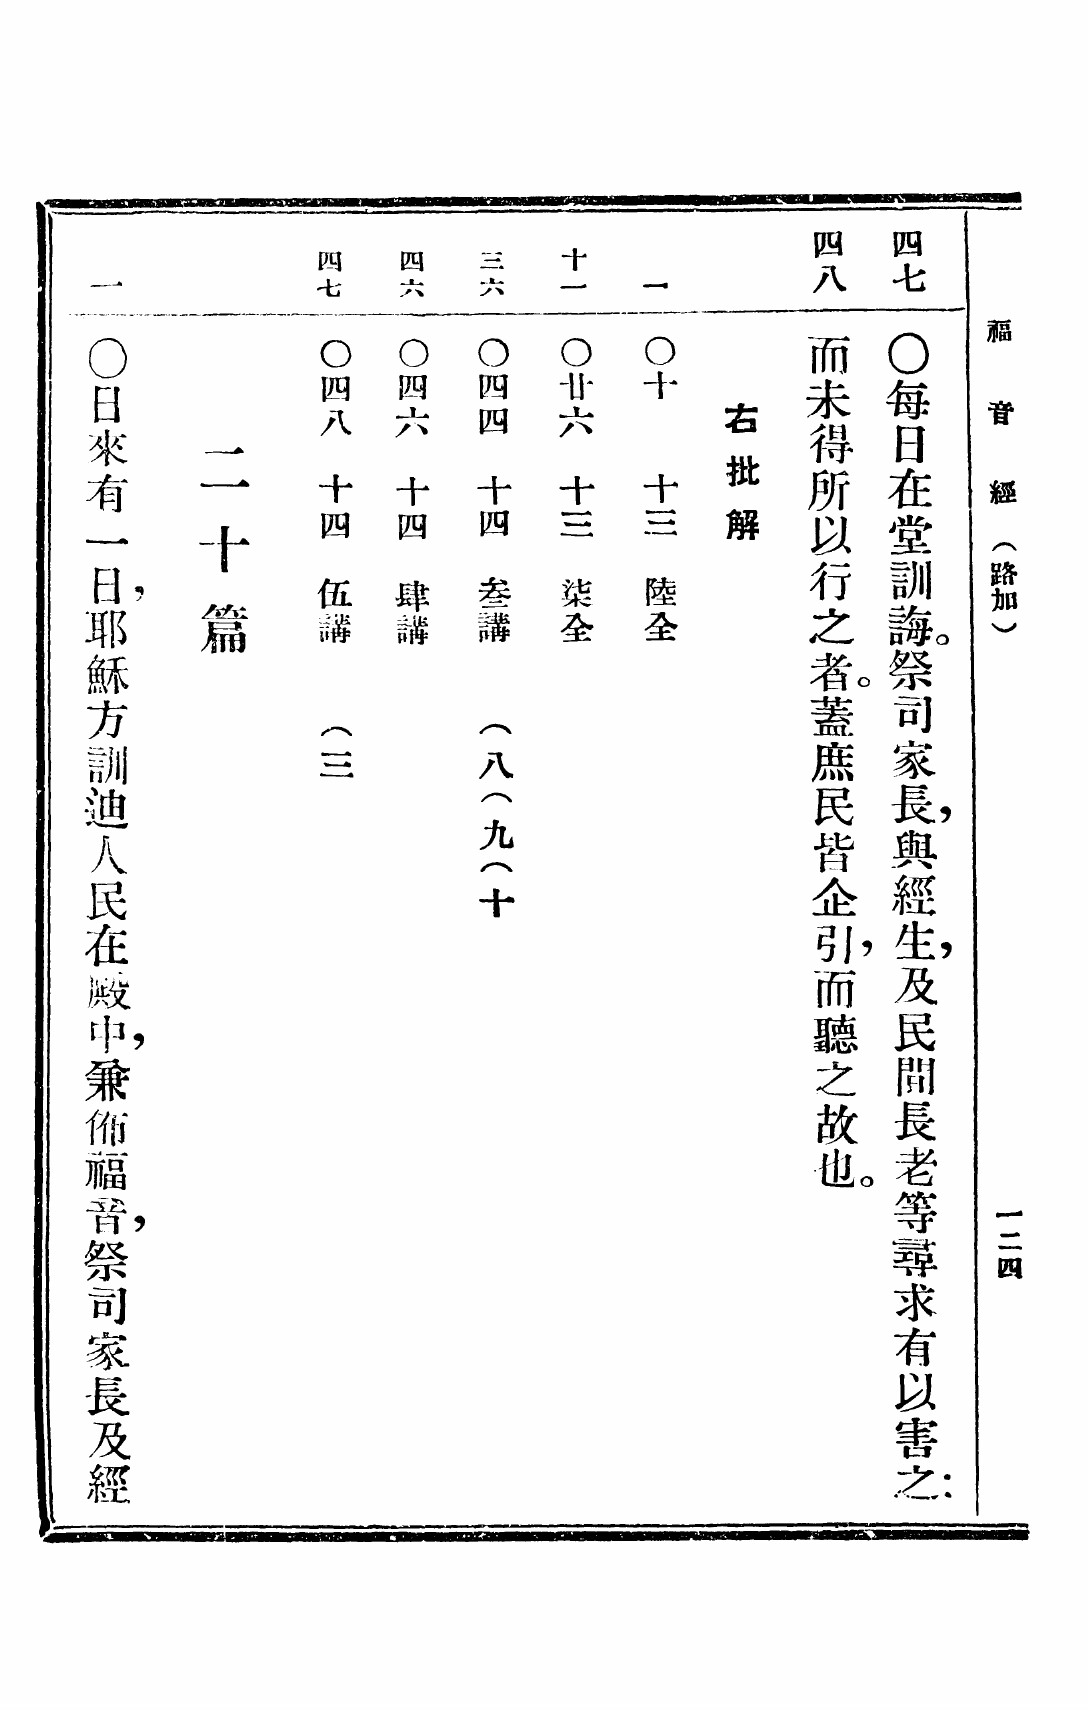 福音經（路加）　一二四
四七　〇每日在堂訓誨。祭司家長，與經生，及民間長老等尋求有以害之：
四八　而未得所以行之者。蓋庶民皆企引，而聽之故也。
右批解
一　〇十　十三　陸全
十一　〇廿六　十三　柒全
三六　〇四四　十四　叁講　（八（九（十
四六　〇四六　十四　肆講
四七　〇四八　十四　伍講　（三
二十篇
一　〇日來有一日，耶穌方訓迪人民在殿中，兼佈福音，祭司家長及經